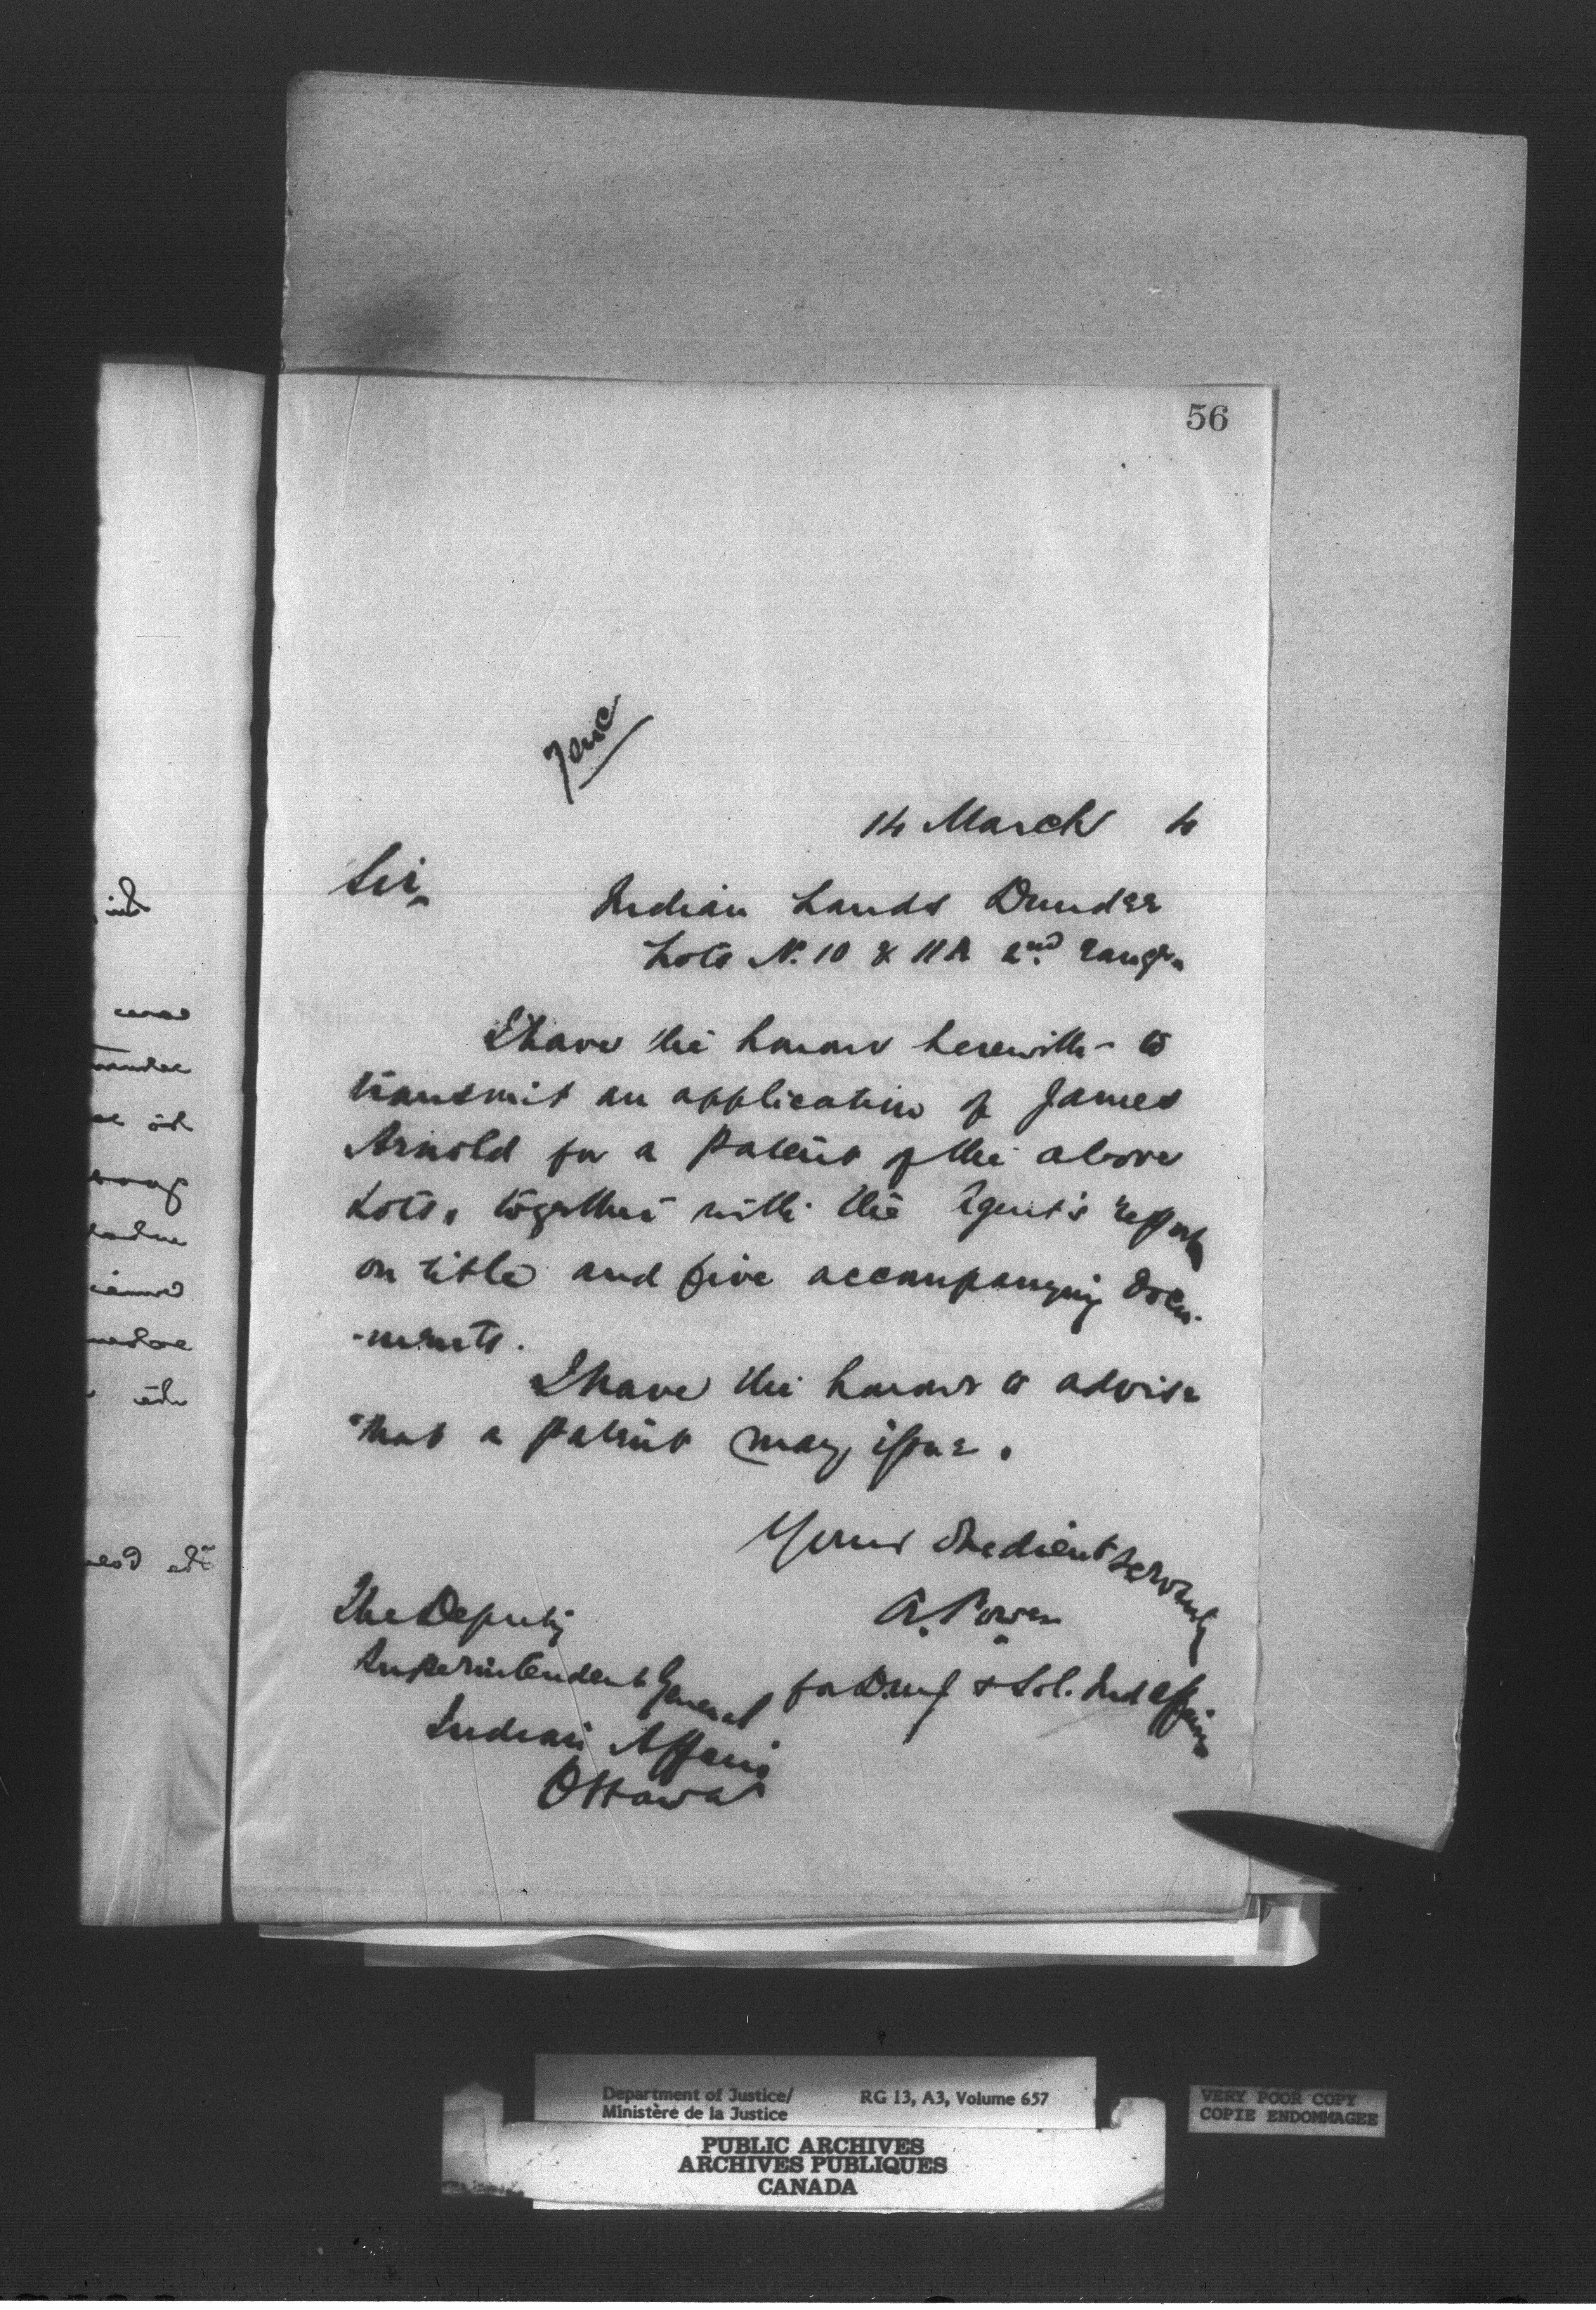 56
14 March 4
Sir,
Indian Lands Dundee
Lots No. 10 & 11A 2nd range.
I have the honour herewith to
transmit an application of James
Arnold for a patent of the above
Lots, together with the Agent's report
on title and five accompanying docu-
-ments.
I have the honour to advise
that a patent may issue.
Your obedient servant
A. Power
for D.M.J. & Sol. Ind Affairs
The Deputy
Superintendent General
Indian Affairs
Ottawa
Department of Justice/ RG 13, A3, Volume 657
Ministère de la Justice
PUBLIC ARCHIVES
ARCHIVES PUBLIQUES
CANADA
VERY POOR COPY
COPIE ENDOMMAGEE